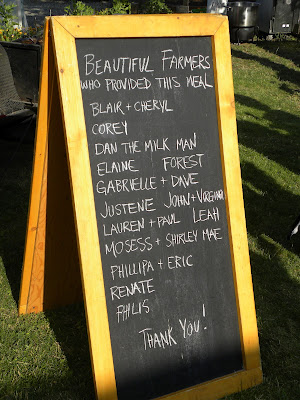 BEAUTIFUL FARMERS
WHO PROVIDED THIS MEAL
BLAIR + CHERYL
COREY
DAN THE MILK MAN
ELAINE FOREST
GABRIELLE + DAVE
JUSTENE JOHN + VIRGINIA
LAUREN + PAUL LEAH
MOSESS + SHIRLEY MAE
PHILLIPA + ERIC
RENATE
PHILIS
THANK YOU!